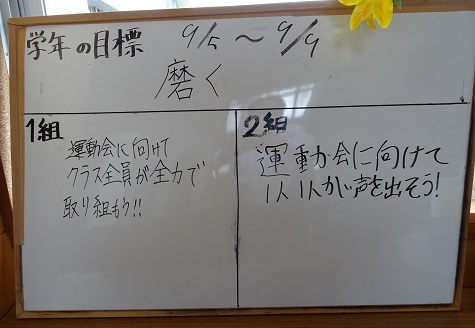 学年の目標 9/5～9/9
磨く
1組
運動会に向けて
クラス全員が全力で
取り組もう!!
2組
運動会に向けて
1人1人が声を出そう!